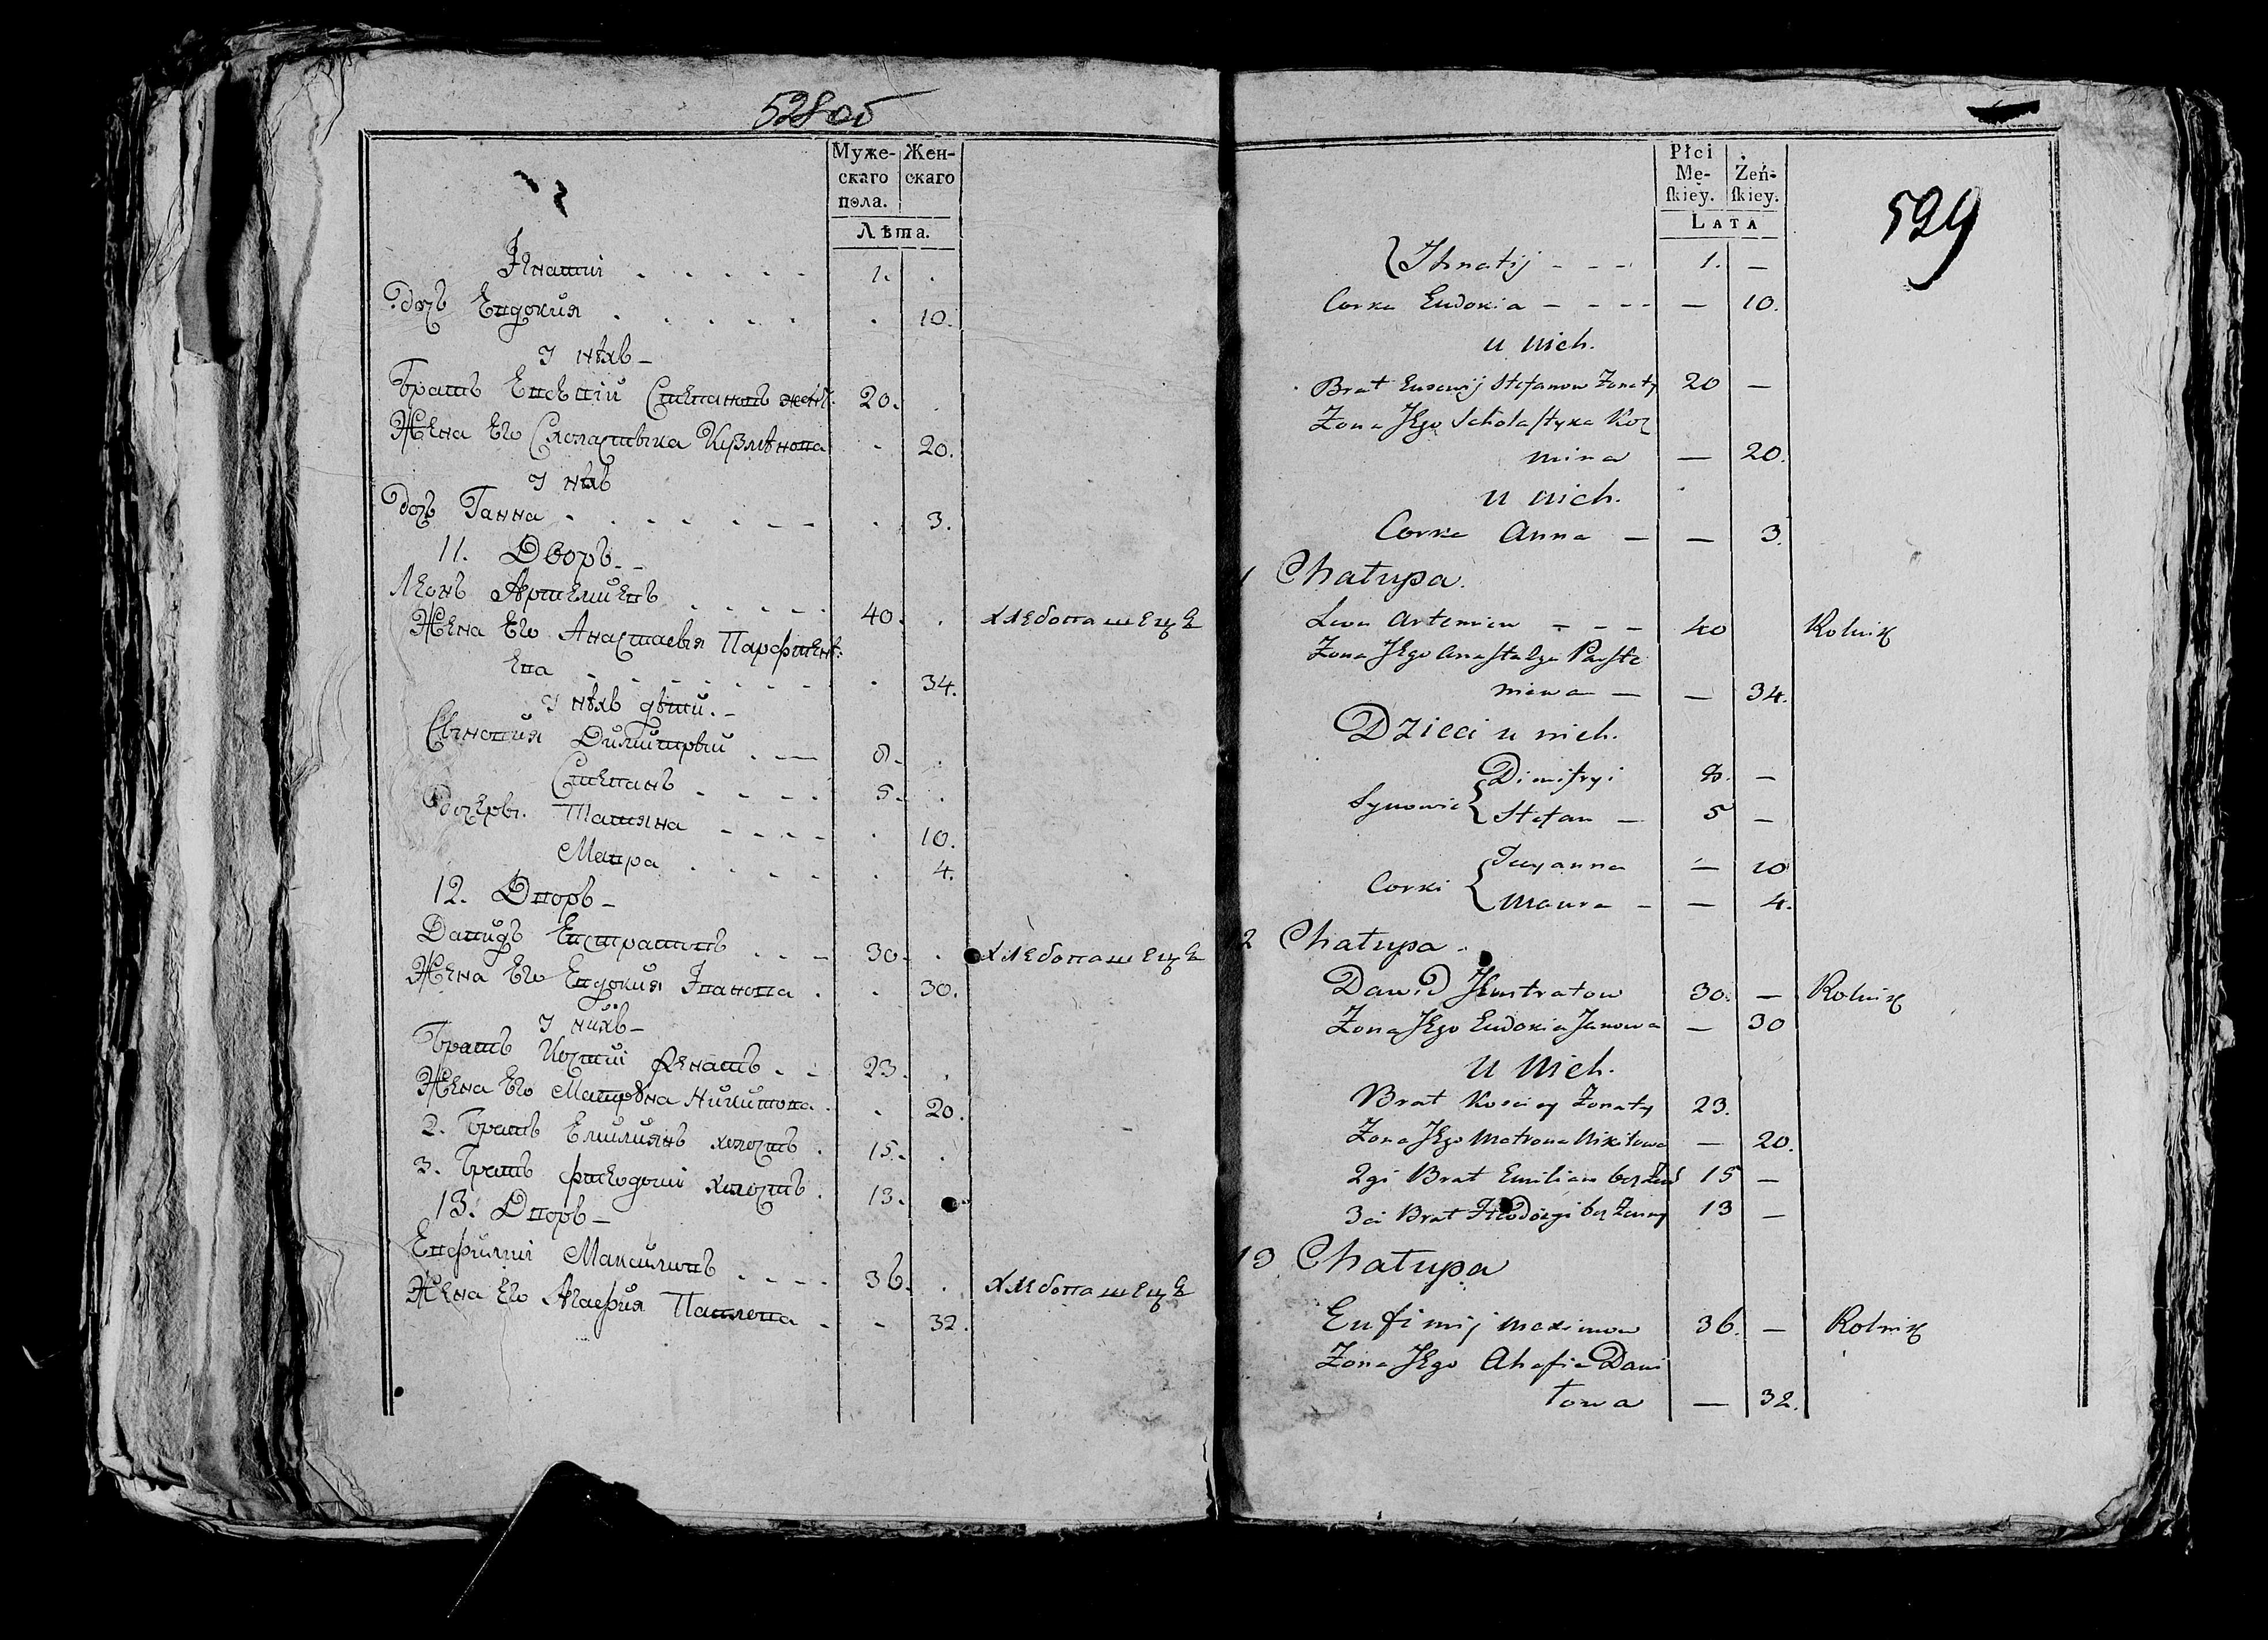 528об
Муже-
скаго
пола.
Жен-
скаго
Лѣта.
Игнатій 1.
Дочь Евдокия 10.
У нѣхъ
Братъ Евсевій Степановъ жен: 20.
Жена Его Схоластыка Кузмѣнова 20.
У нѣхъ
Дочъ Ганна 3.
11. Дворъ
Леонъ Артемиевъ 40. хлебопашецъ
Жена Его Анастасья Парфтен:
ева 34.
У нѣхъ дѣти.
Сыновия Дилитрый 8.
Степанъ 5.
Дочеры. Татяна 10.
Мавра 4.
12. Дворъ
Давидъ Евстратовъ 30. хлебопашецъ
Жена Его Евдокия Іванова 30.
У нихъ
Братъ Костій женатъ 23.
Жена Его Матрона Никитова 20.
2. Братъ Емилиянъ холостъ 15.
3. Братъ Фтеодосій холостъ 13.
13. Дворъ
Евфимій Максимовъ 36. хлебопашецъ
Жена Его Агафия Павлова 32.
529
Płci
Mę-
ſkiey.
Żeń-
ſkiey.
LATA
Ihnatij 1. —
Corka Eudokia — 10.
u nich.
Brat Eusewij Stefanow Żonaty 20 —
Żona Jego Scholastyka Koz
mina — 20.
u nich.
Corka Anna — 3.
1 Chałupa.
Leon Artemiew 40 Rolnik
Żona Jego Anastazya Parfte
niewa — 34.
Dzieci u nich.
Synowie Dimitryi 8. —
Stefan 5 —
Corki Tacyanna — 10
Maura — 4.
2 Chałupa.
Dawid Jewstratow 30. — Rolnik
Żona Jego Eudokia Janowa — 30
u nich.
Brat Kosciey Żonaty 23.
Żona Jego Matrona Nikitowa — 20.
2gi Brat Emilian bez Żony 15 —
3ci Brat Fteodozyi bez Żony 13 —
13 Chałupa
Eufimij Maximow 36. — Rolnik
Żona Jego Ahafia Dawi
łowa — 32.